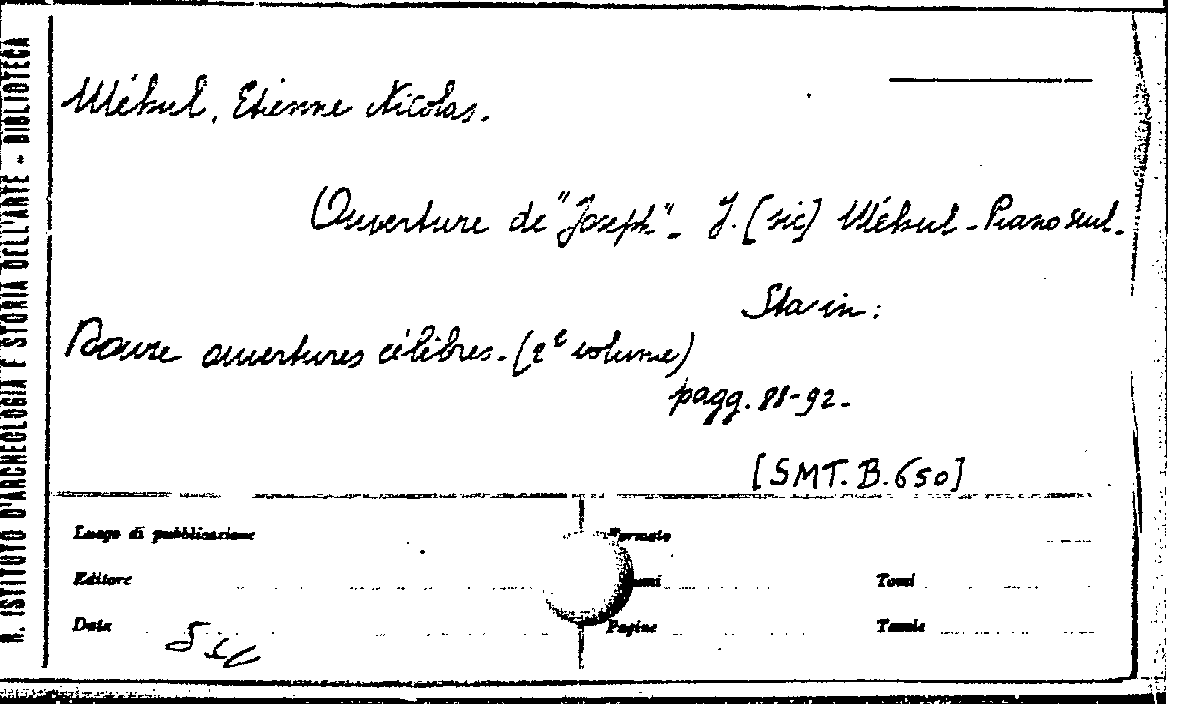 R. ISTITUTO D'ARCHEOLOGIA E STORIA DELL'ARTE - BIBLIOTECA
Méhul, Etienne Nicolas.
Ouverture de "Joseph" - J. [sic] Méhul - Piano seul.
Sta in:
Douze ouvertures célèbres. (2e volume)
pagg. 88-92.
[SMT. B. 650]
Luogo di pubblicazione
Formato
Editore
Tomi
Data
Pagine
Tavole